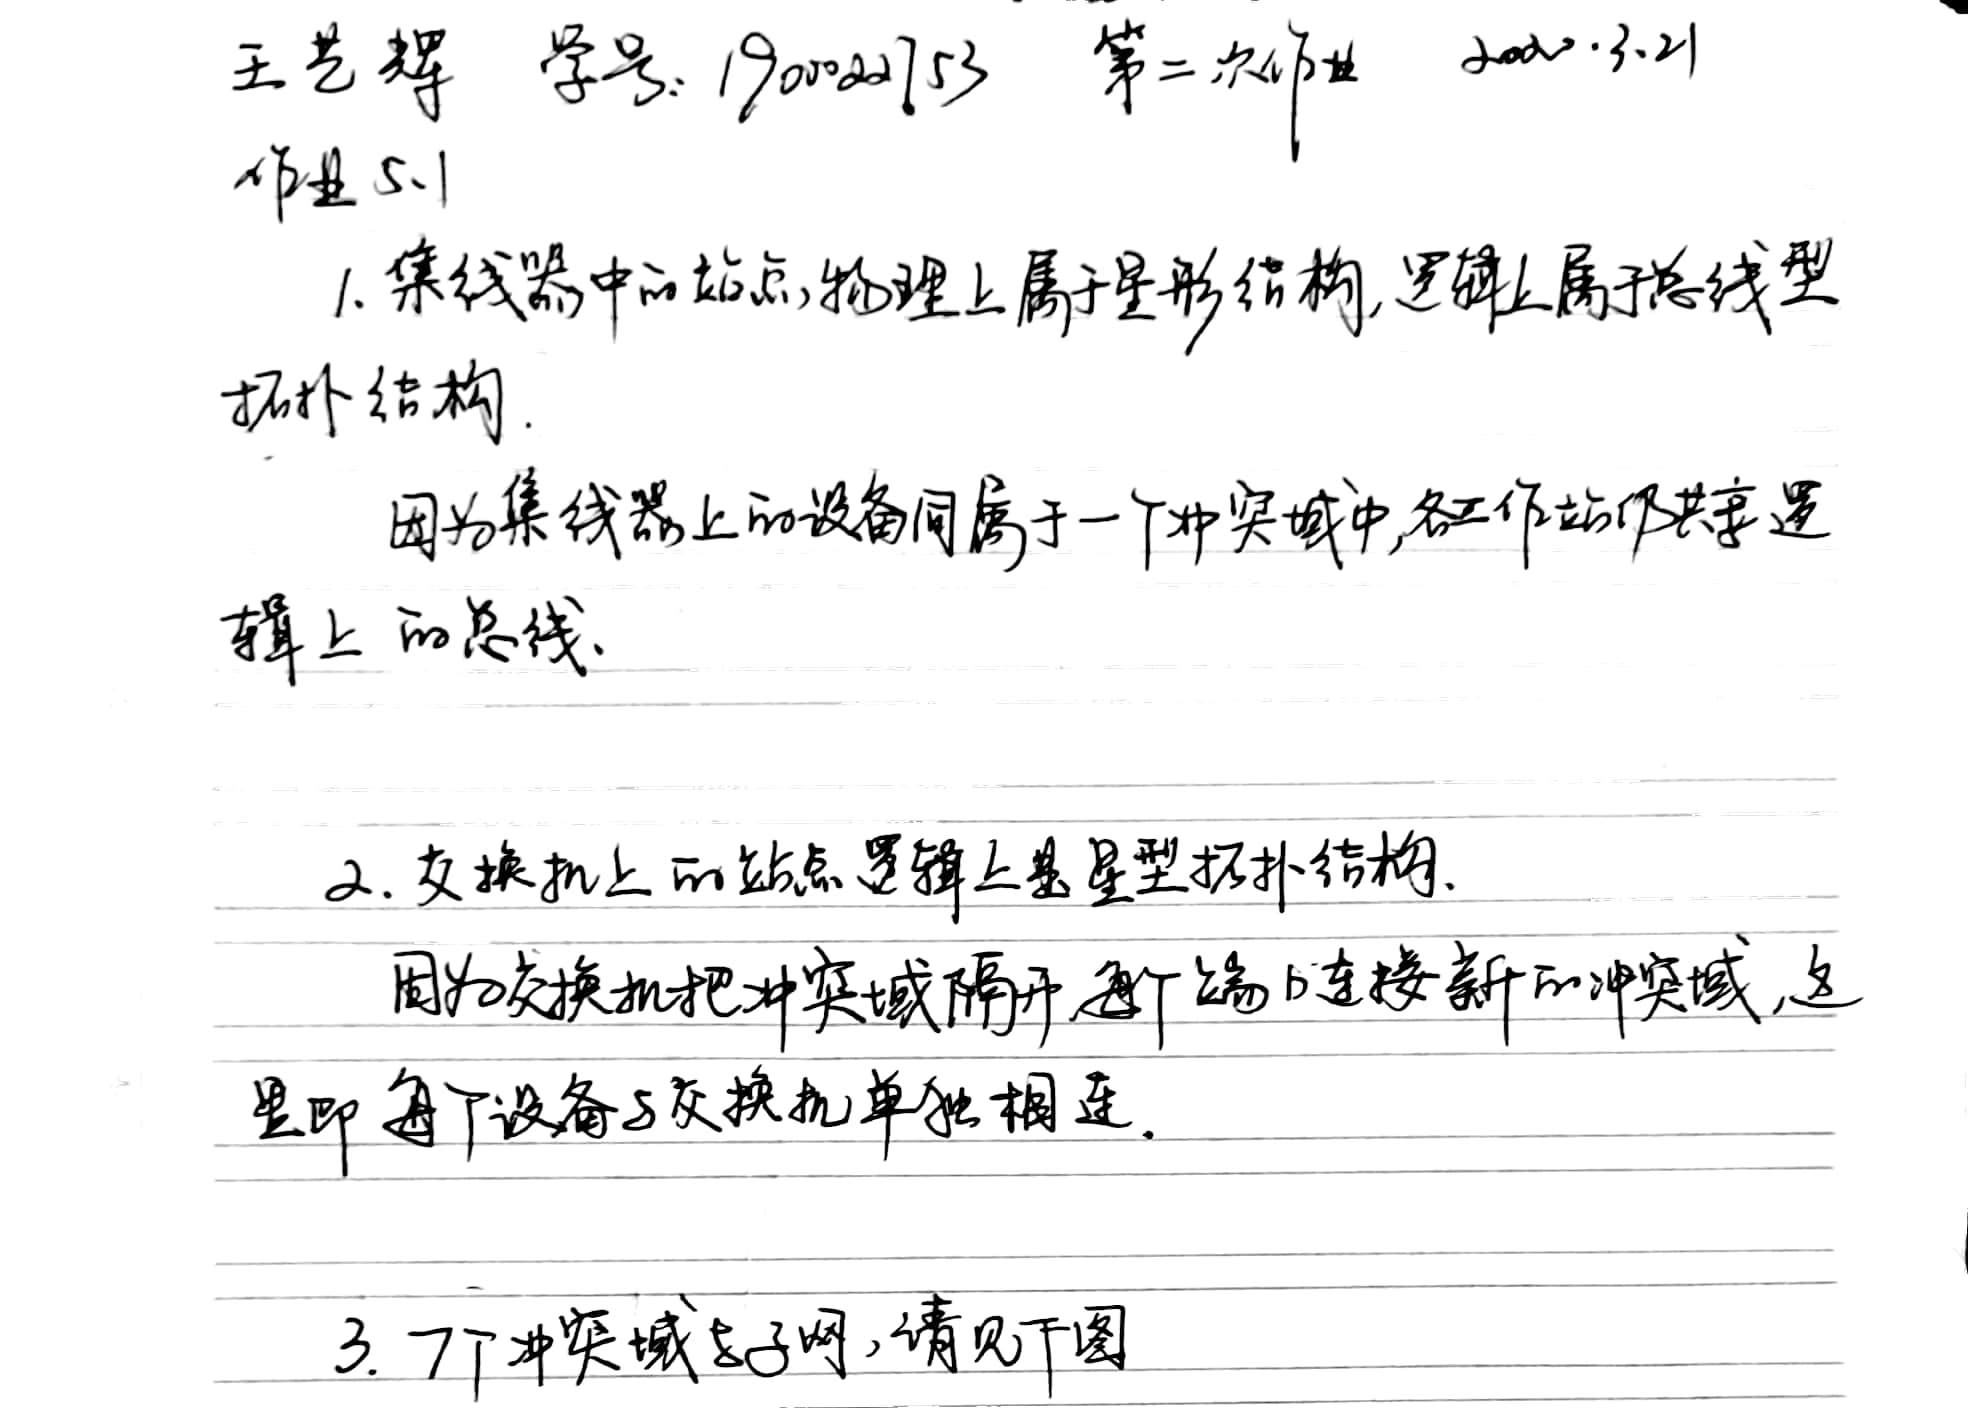 王艺辉 学号:1900022753 第二次作业 2020.3.21
作业5.1
1.集线器中的站点,物理上属于星形结构,逻辑上属于总线型
拓扑结构.
因为集线器上的设备间属于一个冲突域中,各工作站仍共享逻
辑上的总线.
2.交换机上的站点逻辑上是星型拓扑结构.
因为交换机把冲突域隔开,每个端口连接新的冲突域,这
里即每个设备与交换机单独相连.
3.7个冲突域 子网,请见下图